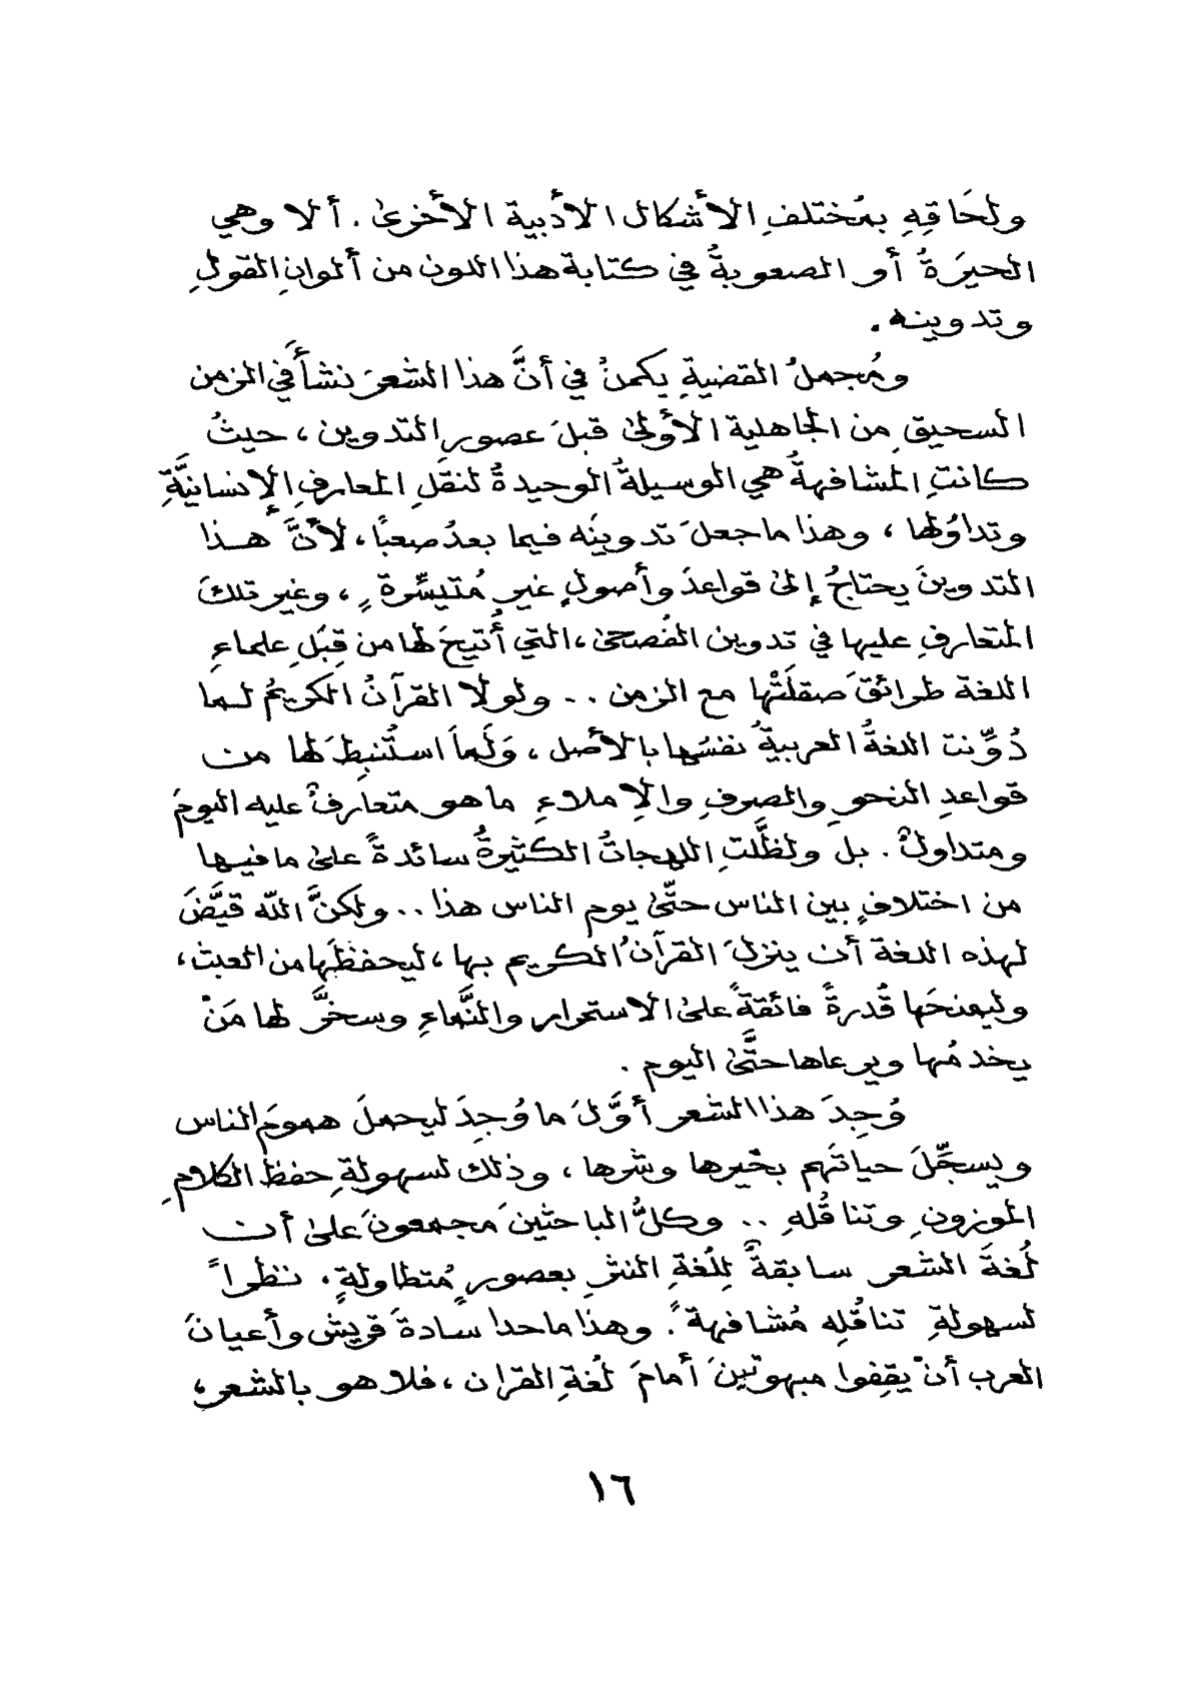 ولحَاقِهِ بمُختلفِ الأشكال الأدبية الأخرىٰ . ألا وهي
الحيرَةُ أو الصعوبةُ في كتابة هذا اللون من ألوانِ القولِ
وتدوينه .
ومُجملُ القضيةِ يكمنُ في أنَّ هذا الشعرَ نشأَ في الزمن
السحيقِ من الجاهلية الأولىٰ قبلَ عصورِ التدوين ، حيثُ
كانتِ المشافهةُ هي الوسيلةُ الوحيدةُ لنقلِ المعارفِ الإنسانيَّةِ
وتداوُلها ، وهذا ما جعلَ تدوينَه فيما بعدُ صعباً ، لأنَّ هذا
التدوينَ يحتاجُ إلىٰ قواعدَ وأصولٍ غيرِ مُتيسِّرةٍ ، وغير تلكَ
المتعارفِ عليها في تدوين الفُصحىٰ ، التي أُتيحَ لها من قِبَلِ علماءِ
اللغة طرائقَ صقلَتْها مع الزمن .. ولولا القرآنُ الكريمُ لما
دُوِّنت اللغةُ العربيةُ نفسُها بالأصل ، وَلَماَ استُنبِطَ لها من
قواعدِ النحوِ والصرفِ والإملاءِ ما هو متعارفٌ عليه اليومَ
ومتداولٌ . بل ولظلَّتِ اللهجاتُ الكثيرةُ سائدةً علىٰ ما فيها
من اختلافٍ بين الناس حتّىٰ يوم الناس هذا .. ولكنَّ اللّه قيَّضَ
لهذه اللغة أن ينزلَ القرآنُ الكريم بها ، ليحفظَها من العبث ،
وليمنحَها قُدرةً فائقةً علىٰ الاستمرار والنَّماءِ وسخَّرَ لها مَنْ
يخدمُها ويرعاها حتَّىٰ اليوم .
وُجِدَ هذا الشعر أوَّلَ ما وُجِدَ ليحملَ همومَ الناس
ويسجِّلَ حياتَهم بخَيرها وشرها ، وذلك لسهولةِ حفظ الكلامِ
الموزونِ وتناقُلهِ .. وكلُّ الباحثينَ مجمعونَ علىٰ أن
لُغةَ الشعر سابقةٌ لِلُغةِ النثرِ بعصورٍ مُتطاولةٍ . نظراً
لسهولةِ تناقُلِه مُشافهةً . وهذا ما حدا سادةَ قريش وأعيانَ
العرب أنْ يقِفوا مبهوتينَ أمامَ لُغةِ القران ، فلا هو بالشعر ،
١٦